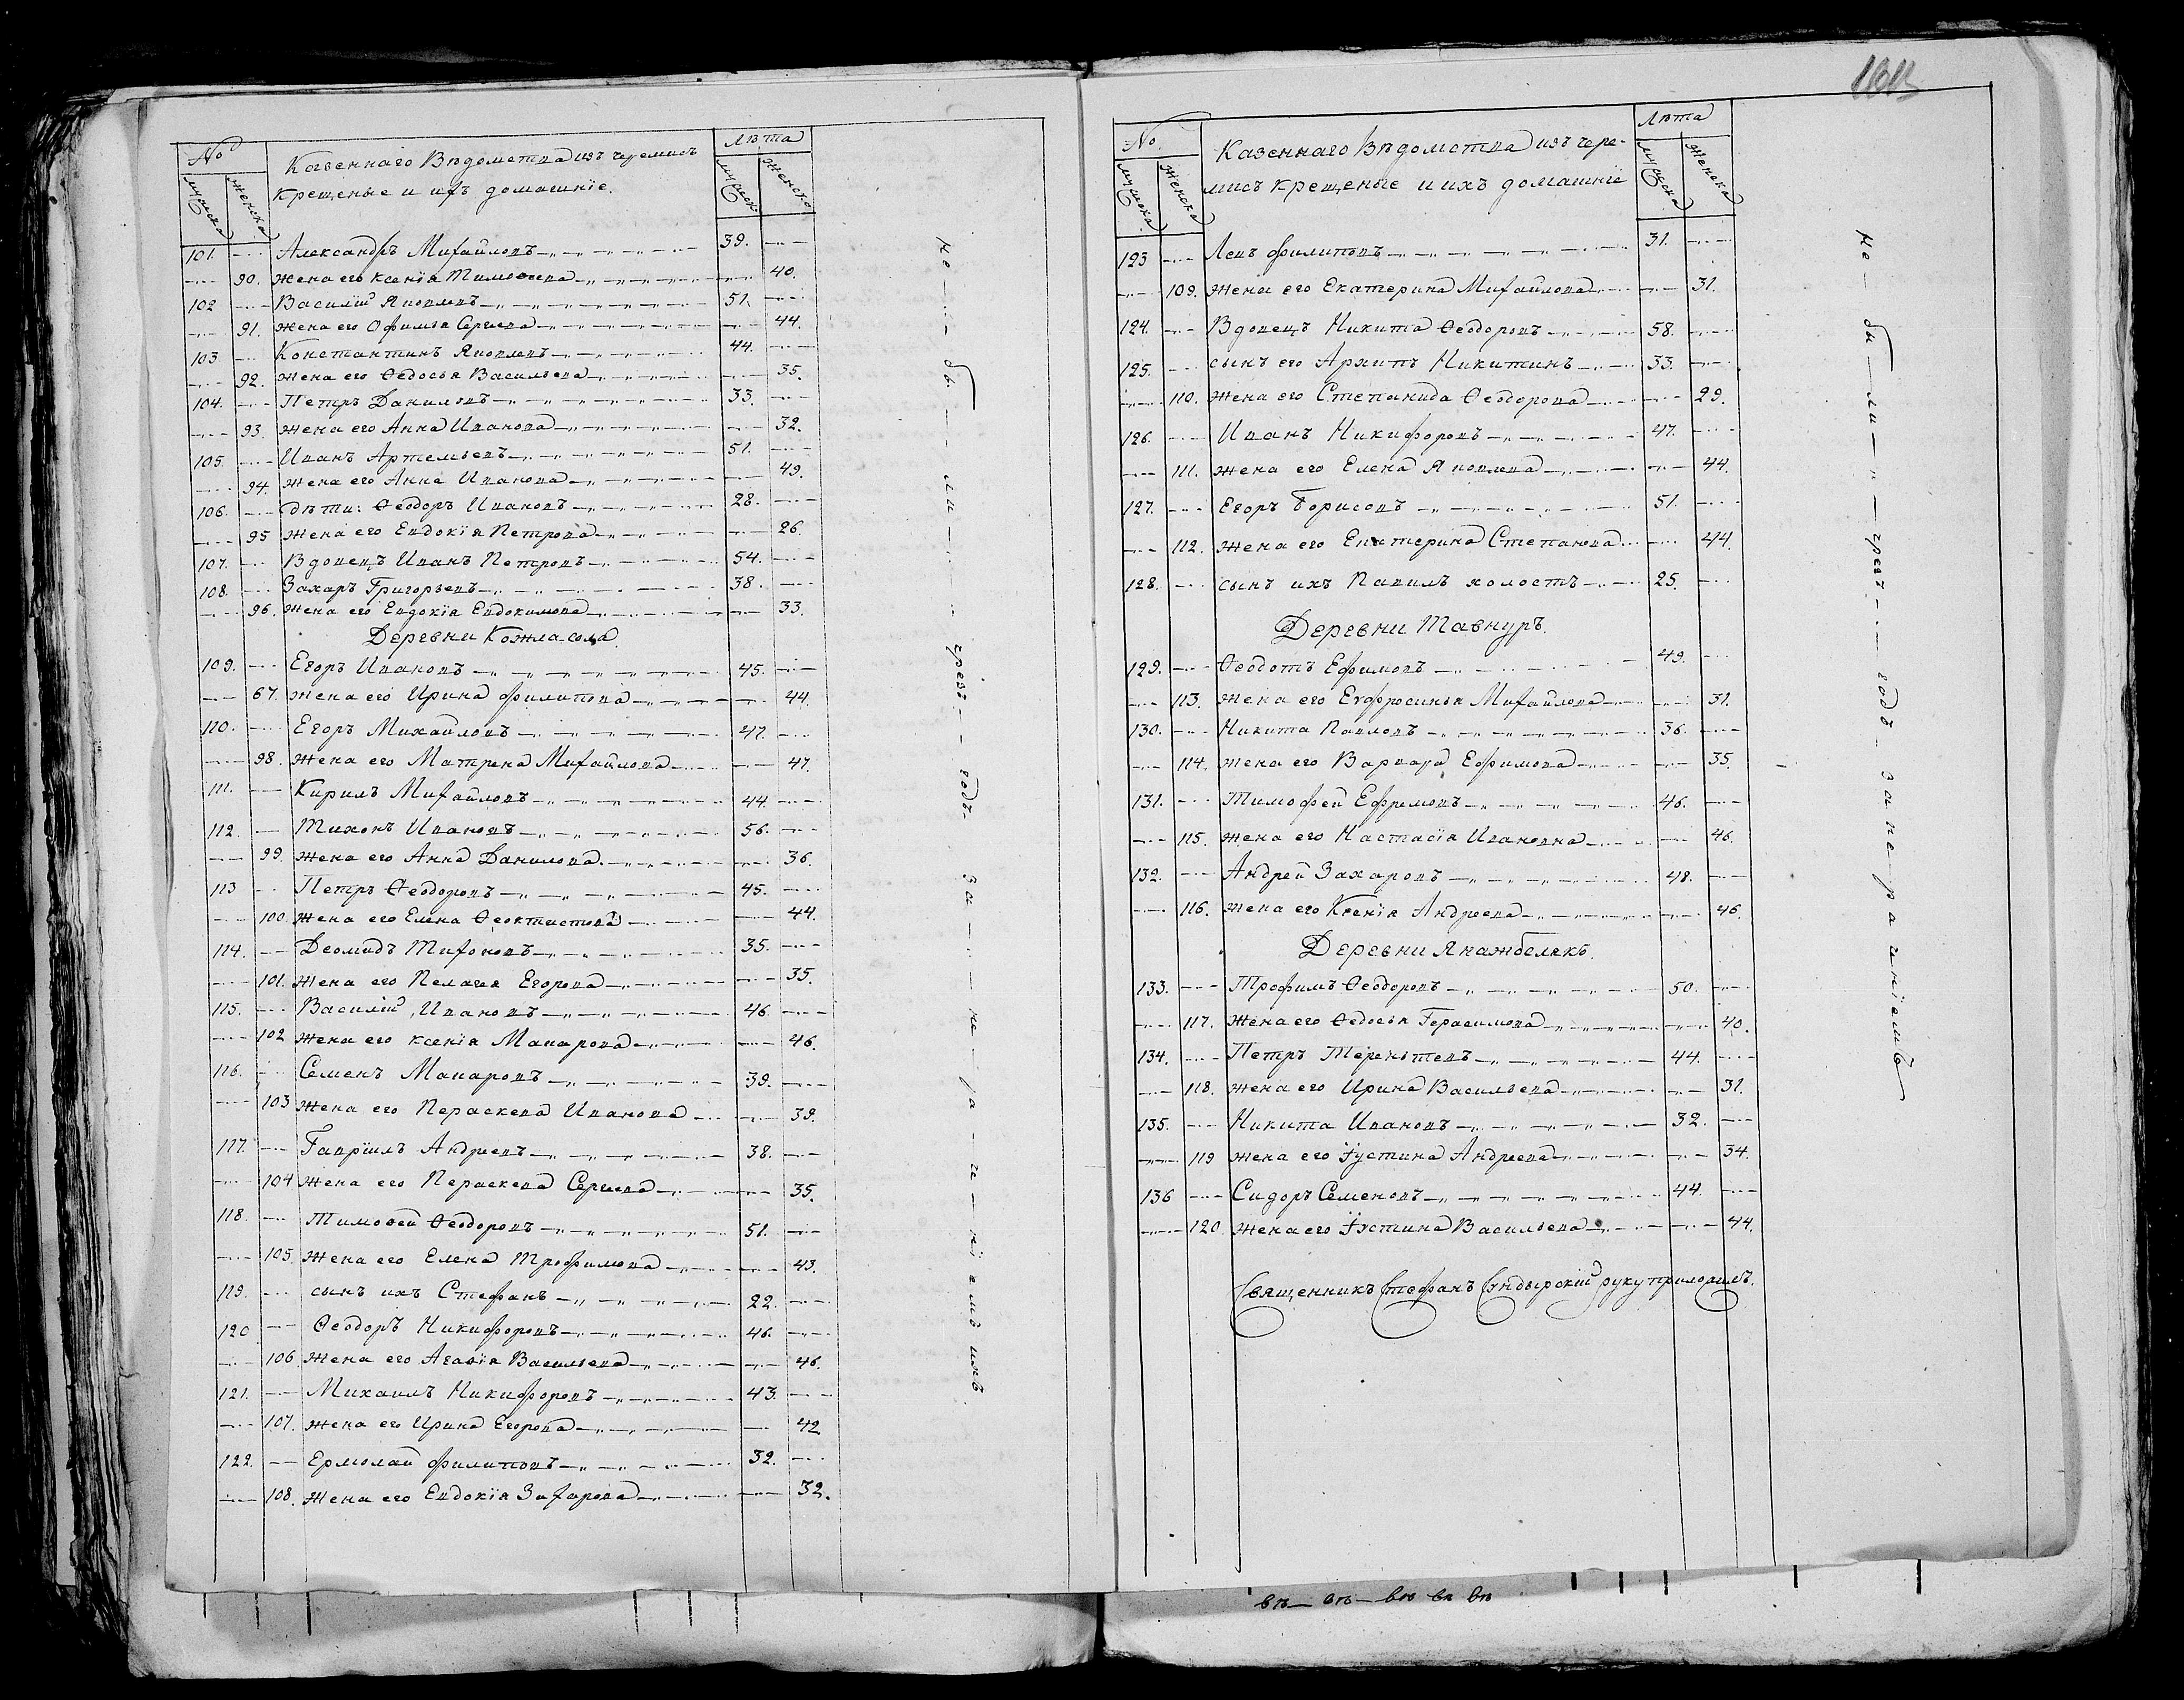 No
Казеннаго Вѣдомства изъ черемисъ
крещеные и ихъ домашнїе.
Лѣта
мужеска
женска
мужеск
женско
101. Александръ Михайловъ 39.
90. жена его Ксенїя Тимофеева 40.
102 Василїй Яковлевъ 51.
91. жена его Офимья Сергеева 44.
103 Константинъ Яковлевъ 44.
92. жена его Ѳедосья Васильева 35.
104. Петръ Даниловъ 33.
93. жена его Анна Иванова 32.
105. Иванъ Артемьевъ 51.
94. жена его Анна Иванова 49.
106. дѣти: Ѳеодоръ Ивановъ 28.
95 жена его Евдокїя Петрова 26.
107. Вдовецъ Иванъ Петровъ 54.
108. Захаръ Григорьевъ 38.
96. жена его Евдокїя Евдокимова 33.
Деревни Кожласола.
109. Егоръ Ивановъ 45.
67. жена его Ирина Филипова 44.
110. Егоръ Михайловъ 47.
98. жена его Матрена Михайлова 47.
111. Кирилъ Михайловъ 44.
112. Тихонъ Ивановъ 56.
99. жена его Анна Данилова 36.
113 Петръ Ѳеодоровъ 45.
100. жена его Елена Ѳеоктистова 44.
114. Деомидъ Тихоновъ 35.
101. жена его Пелагея Егорова 35.
115. Василїй Ивановъ 46.
102 жена его Ксенїя Макарова 46.
116. Семенъ Макаровъ 39.
103 жена его Пераскева Иванова 39.
117. Гаврїилъ Андреевъ 38.
104 жена его Пераскева Сергеева 35.
118. Тимоѳей Ѳеодоровъ 51.
105. жена его Елена Трофимова 43.
119. сынъ ихъ Стефанъ 22.
120 Ѳеодоръ Никифоровъ 46.
106 жена его Агафїя Васильева 46.
121. Михаилъ Никифоровъ 43.
107. жена его Ирина Егорова 42
122. Ермолай Филиповъ 32.
108. жена его Евдокїя Захарова 32.
не бы ли чрезъ годъ. за не ра ченїемъ
No
Казеннаго Вѣдомства изъ чере-
мисъ крещеные и ихъ домашнїе
Лѣта
мужеска
женска
мужеска
женска
123 Левъ Филиповъ 31.
109. жена его Екатерина Михайлова 31.
124. Вдовецъ Никита Ѳеодоровъ 58.
125. сынъ его Архипъ Никитинъ 33.
110. жена его Степанида Ѳеодорова 29.
126. Иванъ Никифоровъ 47.
111. жена его Елена Яковлева 44.
127. Егоръ Борисовъ 51.
112. жена его Екатерина Степанова 44.
128. сынъ ихъ Павилъ холостъ 25.
Деревни Тавнуръ.
129. Ѳеодотъ Ефимовъ 49.
113. жена его Евфросинья Михайлова 31.
130. Никита Павловъ 36.
114. жена его Варвара Ефимова 35.
131. Тимофей Ефремовъ 46.
115. жена его Настасїя Ивановна 46.
132. Андрей Захаровъ 48.
116. жена его Ксенїя Андреева 46.
Деревни Янажбелякъ.
133. Трофимъ Ѳеодоровъ 50.
117. жена его Ѳедосья Герасимова 40.
134. Петръ Терентьевъ 44.
118. жена его Ирина Васильева 31.
135. Никита Ивановъ 32.
119 жена его Іустина Андреева 34.
136 Сидоръ Семеновъ 44.
120 жена его Іустина Васильева 44.
Священникъ Стефанъ Сундырскій руку приложилъ.
не бы ли чрезъ годъ за не ра ченїемъ